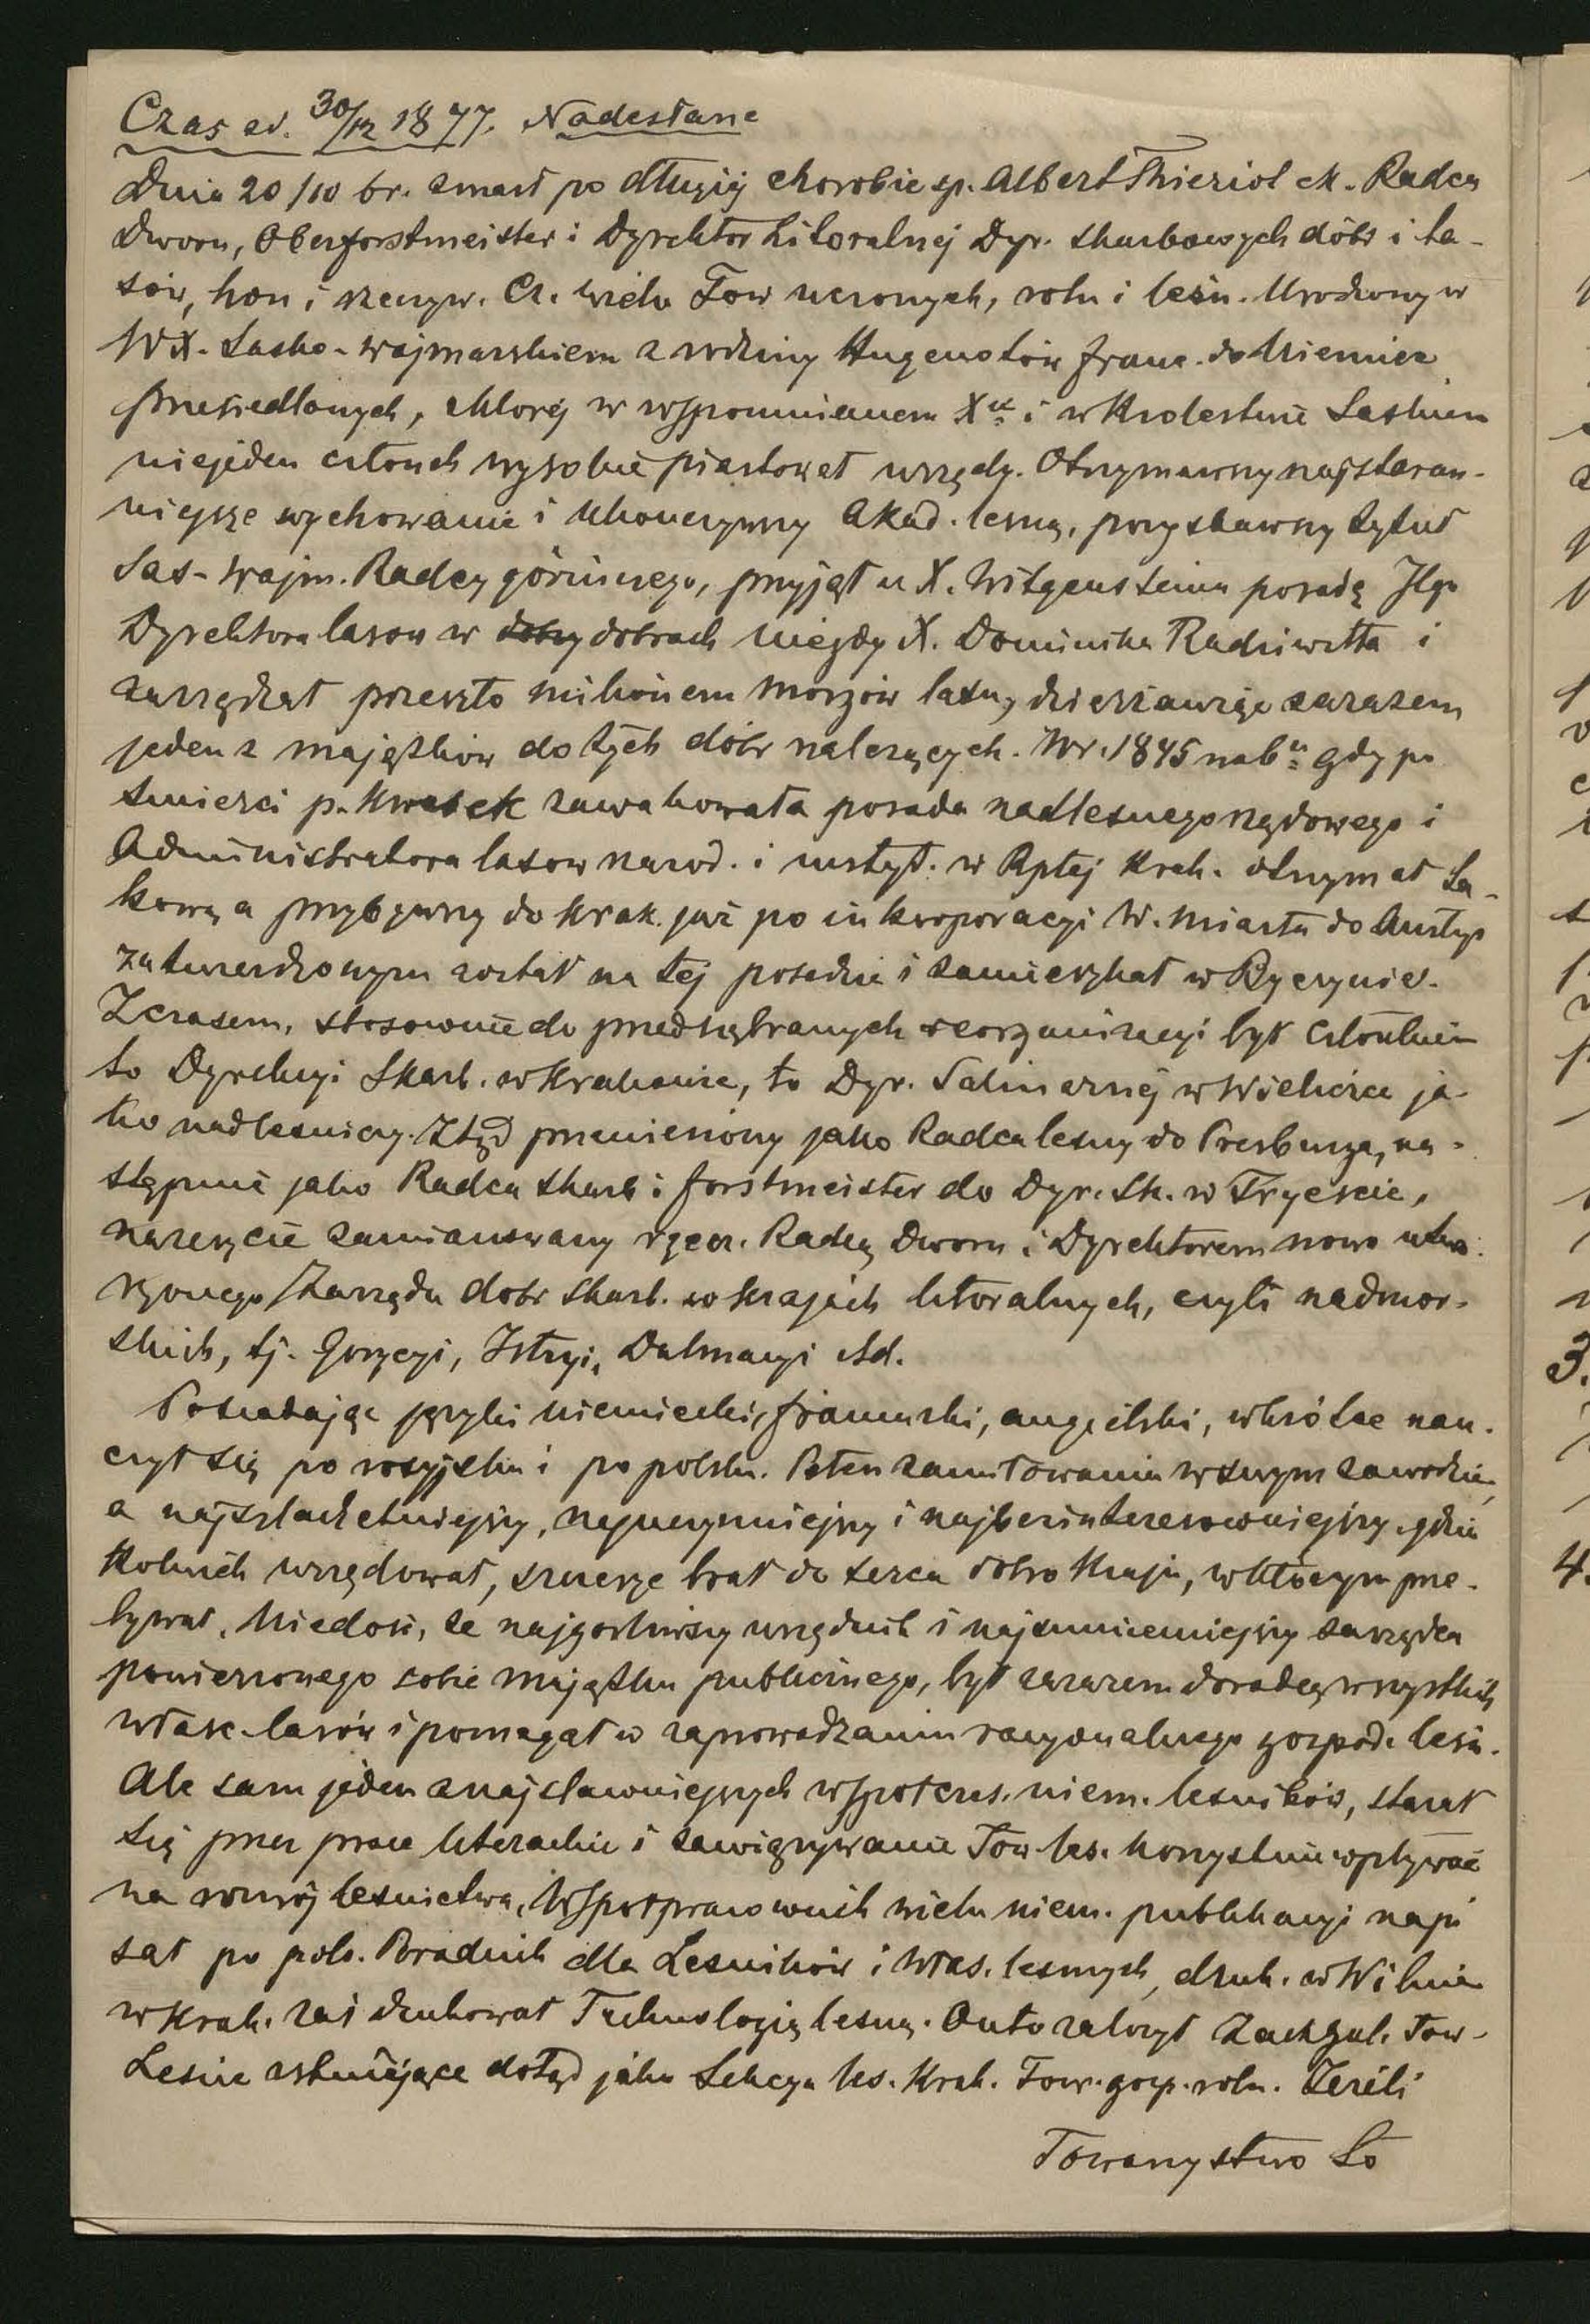 Czas ad. 30/12 1877. Nadesłane
Dnia 20/10 br. zmarł po długiej chorobie sp. Albert Thieriot ck. Radca
Dworu, Oberforstmeister i Dyrektor Litoralnej Dyr. skarbowych dóbr i la-
sów, hon i rzeczyw. Cz. wielu Tow uczonych, roln i leśn. Urodzony w
WX. Sasko-wajmarskiem z rodziny Hugenotów franc. do Niemiec
przesiedlonych, której w wspomnianem X. i w Krolestwie Saskiem
niejeden członek wysokie piastował urzędy. Otrzymawszy najstaran-
niejsze wychowanie i ukończywszy Akad. lesną, pozyskawszy tytuł
Sas-wajm. Radcy górniczego, przyjął u X. Witgensteina posadę IIgo
Dyrektora lasow w dobry dobrach niegdy X. Dominika Radziwiłła i
zarządzał przeszło milionem morgów lasu, dzierżawiąc zarazem
jeden z majątków do tych dóbr należących. W r. 1845 gdy po
śmierci p. Kwasek zawakowała posada nadlesnego rządowego i
Administratora lasow narod. i instyt. w Rptej Krak. otrzymał ta-
kową a przybywszy do Krak. już po inkorporacyi W. Miasta do Austryi
zatwierdzonym został na tej posadzie i zamieszkał w Byczynie.
Z czasem, stosownie do przedsiębranych reorganizacyi był członkiem
to Dyrekcyi Skarb. w Krakowie, to Dyr. Salinarnej w Wieliczce ja-
ko nadlesniczy. Ztąd przeniesiony jako Radca lesny do Presburga, na-
stępnie jako Radca skarb i forstmeister do Dyr. Sk. w Tryeście,
nareszcie zamianowany rzecz. Radcą Dworu i Dyrektorem nowo utwo-
rzonego Zarządu dobr skarb. w krajach litoralnych, czyli nadmor-
skich, tj. Gorycyi, Istryi, Dalmacyi itd.
Posiadając języki niemiecki, francuski, angielski, wkrótce nau-
czył się po rosyjsku i po polsku. Pełen zamiłowania w swym zawodzie,
a najszlachetniejszy, najuczynniejszy i najbezinteresowniejszy, gdzie
kolwiek urzędował, szczerze brał do serca dobro kraju, w którym prze-
bywał. Niedość, że najgorliwszy urzędnik i najsumienniejszy zarządca
powierzonego sobie majątku publicznego, był zarazem doradcą wszystkich
właśc. lasów i pomagał w zaprowadzaniu racyonalnego gospod. leśn.
Ale sam jeden z najsławniejszych współczes. niem. lesników, starał
się przez prace literackie i zawiązywanie Tow. les. korzystnie wpływać
na rozwój leśnictwa. Współpracownik wielu niem. publikacyi napi
sał po pols. Poradnik dla Lesników i włas. lesnych, druk. w Wilnie
w Krak. zaś drukował Technologią lesną. On to założył Zach. gal. Tow.
Lesne istniejące dotąd jako Sekcya les. Krak. Tow. gosp. roln. Jeżeli
Towarzystwo to